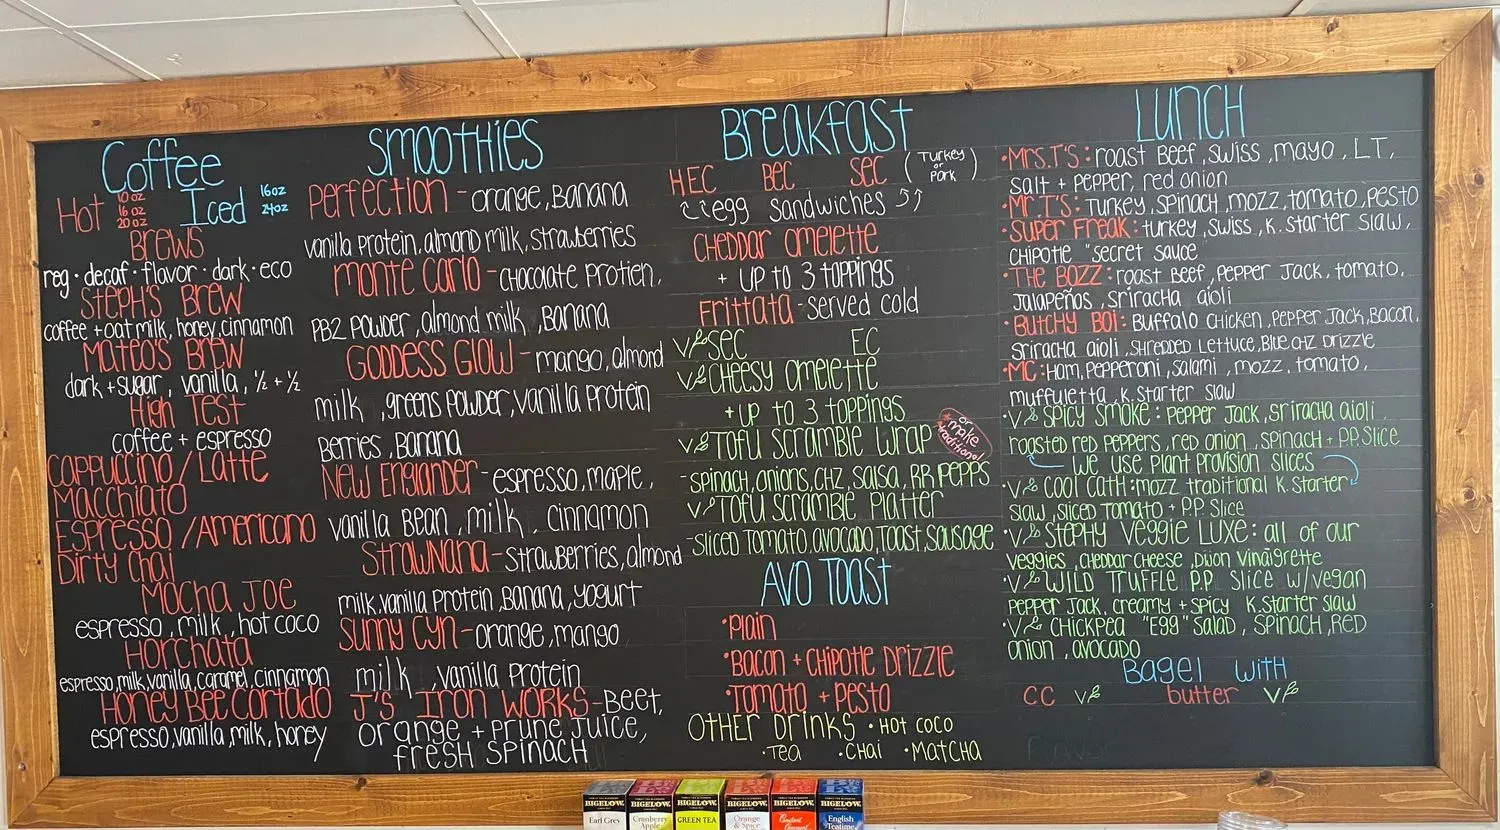 Coffee
Hot 10oz 16oz 20oz Iced 16oz 24oz
Brews
reg · decaf · flavor · dark · eco
Steph's Brew
coffee + oat milk, honey, cinnamon
Mateo's Brew
dark + sugar, vanilla, ½ + ½
High Test
coffee + espresso
Cappuccino / Latte
Macchiato
Espresso / Americano
Dirty Chai
Mocha Joe
espresso, milk, hot coco
Horchata
espresso, milk, vanilla, caramel, cinnamon
Honey Bee Cortado
espresso, vanilla, milk, honey
Smoothies
Perfection - orange, Banana
vanilla Protein, almond milk, strawberries
Monte Carlo - chocolate Protien,
PB2 Powder, almond milk, Banana
Goddess Glow - mango, almond
milk, greens Powder, vanilla Protein
Berries, Banana
New Englander - espresso, maple,
vanilla Bean, milk, cinnamon
Strawnana - strawberries, almond
milk, vanilla Protein, Banana, yogurt
Sunny Cyn - orange, mango
milk, vanilla Protein
J's Iron Works - Beet,
orange + Prune Juice,
fresh spinach
Breakfast
HEC BEC SEC (Turkey or Pork)
egg sandwiches
Cheddar omelette
+ up to 3 toppings
Frittata - served cold
V SEC EC
V Cheesy omelette
+ up to 3 toppings
V Tofu Scramble Wrap * or make traditional
- spinach, onions, chz, salsa, RR Pepps
V Tofu Scramble Platter
- sliced tomato, avocado, toast, sausage
Avo Toast
· Plain
· Bacon + Chipotle Drizzle
· Tomato + Pesto
Other Drinks · Hot coco
· Tea · Chai · Matcha
Lunch
· Mrs. T's: roast Beef, swiss, mayo, LT,
salt + pepper, red onion
· Mr. T's: Turkey, spinach, mozz, tomato, pesto
· Super Freak: turkey, swiss, K. starter slaw,
chipotle "secret sauce"
· The Bozz: roast Beef, Pepper Jack, tomato,
Jalapeños, sriracha aioli
· Butchy Boi: Buffalo chicken, Pepper Jack, Bacon,
sriracha aioli, shredded lettuce, Blue chz drizzle
· MC: Ham, pepperoni, salami, mozz, tomato,
muffuletta, K. starter slaw
· V Spicy Smoke: Pepper Jack, sriracha aioli
roasted red peppers, red onion, spinach + P.P. Slice
We use Plant Provision Slices
· V Cool Cath: mozz traditional K. Starter
slaw, sliced tomato + P.P. Slice
· V Stephy Veggie Luxe: all of our
veggies, cheddar cheese, Dijon vinaigrette
· V Wild Truffle P.P. Slice w/ vegan
Pepper Jack, creamy + spicy K. starter slaw
· V Chickpea "Egg" Salad, Spinach, Red
onion, avocado
Bagel with
CC V butter V
Flavor
BIGELOW Earl Grey
BIGELOW Cranberry Apple
BIGELOW GREEN TEA
BIGELOW Orange & Spice
BIGELOW Constant Comment
BIGELOW English Teatime